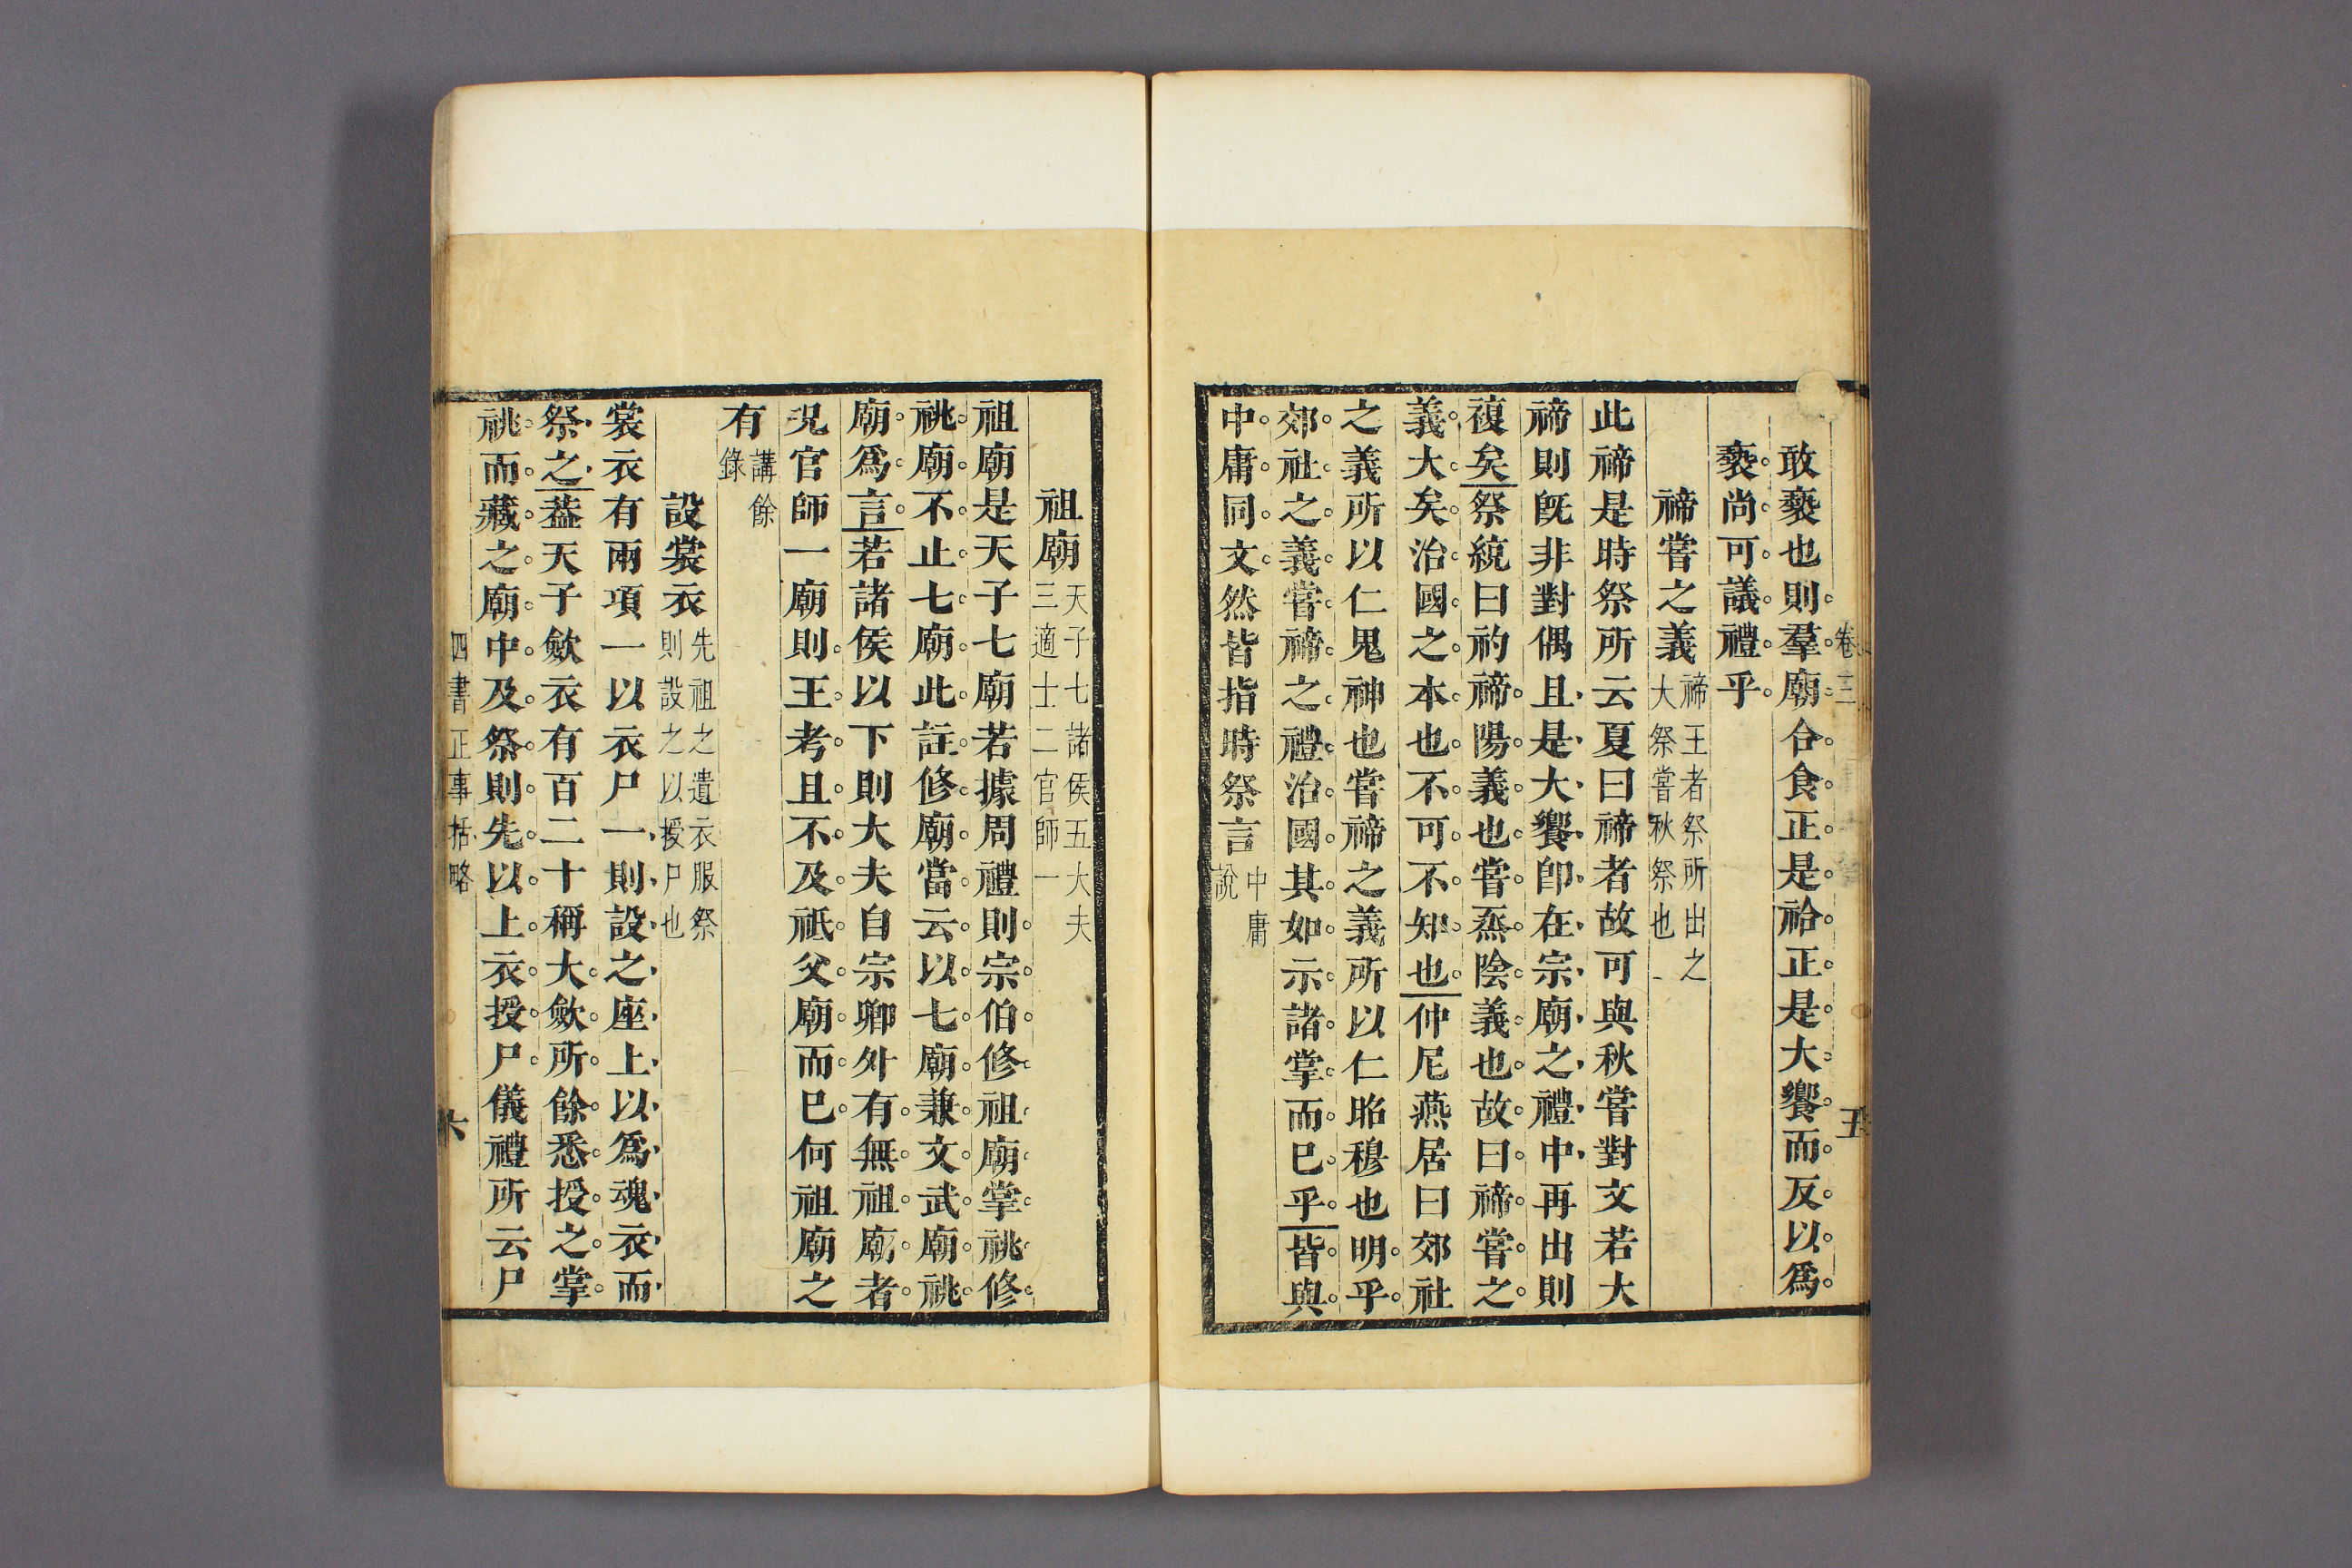 卷三
五
敢褻也則羣廟合食正是祫正是大饗而反以爲
褻尚可議禮乎
禘嘗之義
禘王者祭所出之
大祭嘗秋祭也
此禘是時祭所云夏曰禘者故可與秋嘗對文若大
禘則旣非對偶且是大饗卽在宗廟之禮中再出則
複矣祭統曰礿禘陽義也嘗烝陰義也故曰禘嘗之
義大矣治國之本也不可不知也仲尼燕居曰郊社
之義所以仁鬼神也嘗禘之義所以仁昭穆也明乎
郊社之義嘗禘之禮治國其如示諸掌而已乎皆與
中庸同文然皆指時祭言
中庸
說
祖廟
天子七諸侯五大夫
三適士二官師一
祖廟是天子七廟若據周禮則宗伯修祖廟掌祧修
祧廟不止七廟此註修廟當云以七廟兼文武廟祧
廟爲言若諸侯以下則大夫自宗卿外有無祖廟者
況官師一廟則王考且不及祗父廟而已何祖廟之
有
講餘
錄
設裳衣
先祖之遺衣服祭
則設之以授尸也
裳衣有兩項一以衣尸一則設之座上以爲魂衣而
祭之葢天子斂衣有百二十稱大斂所餘悉授之掌
祧而藏之廟中及祭則先以上衣授尸儀禮所云尸
四書正事括略
六